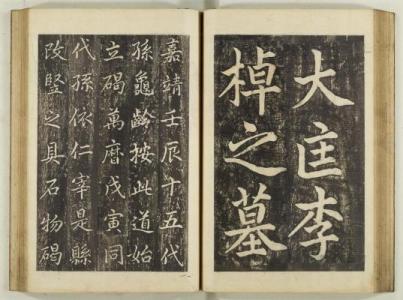 大匡李
棹之墓
嘉靖壬辰十五代
孫龜齡按此道始
立碣萬曆戊寅同
代孫依仁宰是縣
改竪之具石物碣